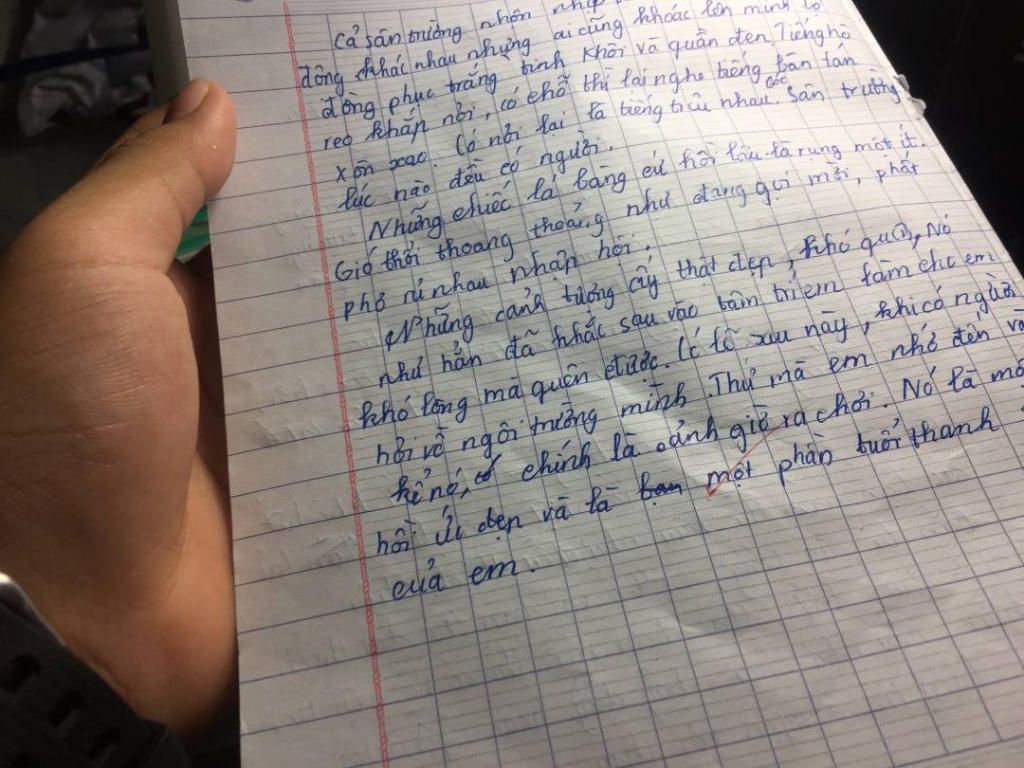 Cả sân trường nhôn nhịp
đông khác nhau nhưng ai cũng khoác lên mình bộ
đồng phục trắng tinh khôi và quần đen. Tiếng hò
reo khắp nơi, có chỗ thì lại nghe tiếng bàn tán
xôn xao. Có nơi lại là tiếng trêu nhau. các Sân trường
lúc nào đều có người.
Những chiếc lá bàng cứ hồi lâu là rụng một ít.
Gió thổi thoang thoảng như đang gọi mời, phất
phơ rủ nhau nhập hội.
Những cảnh tượng ấy thật đẹp, khó quá, Nó
như hẳn đã khắc sâu vào tâm trí em làm cho em
khó lòng mà quên được. Có lẽ sau này, khi có người
hỏi về ngôi trường mình. Thứ mà em nhớ đến và
kể nó, chính là cảnh giờ ra chơi. Nó là một
hồi ức đẹp và là một phần tuổi thanh
của em.